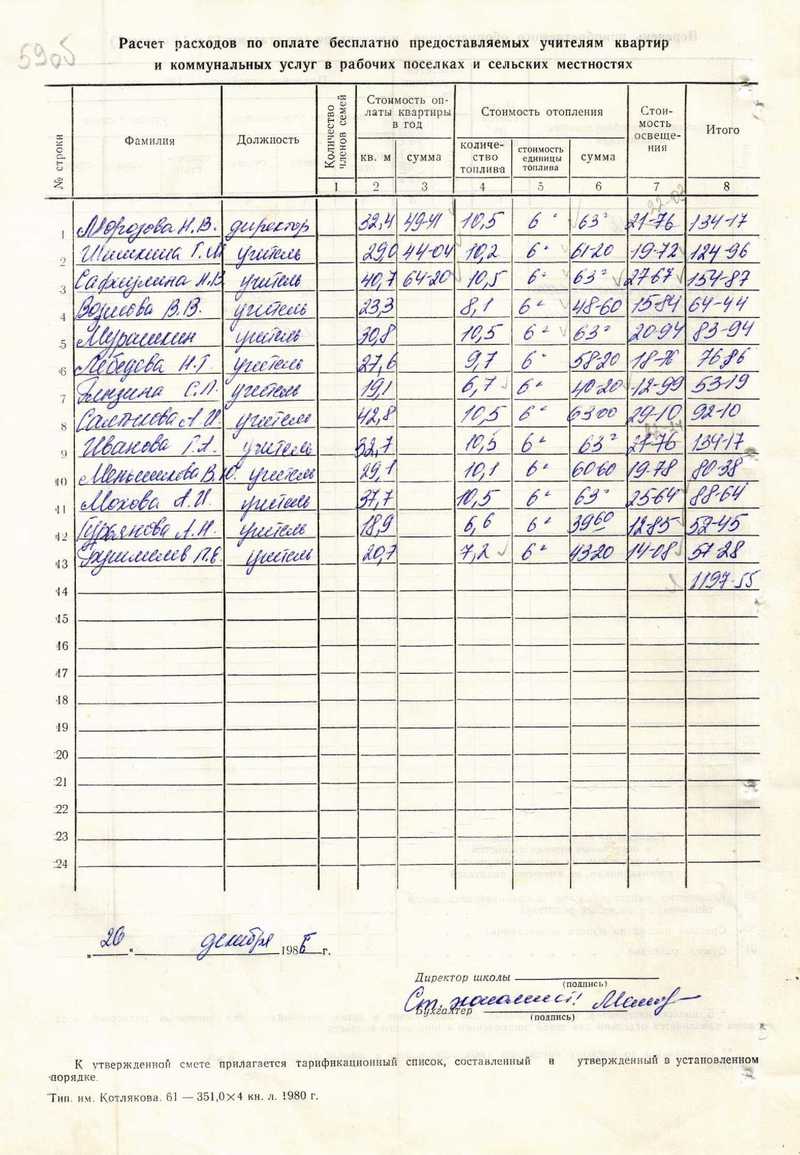 590б
Расчет расходов по оплате бесплатно предоставляемых учителям квартир
и коммунальных услуг в рабочих поселках и сельских местностях
№ строки Фамилия Должность Количество членов семей Стоимость оплаты квартиры в год Стоимость отопления Стоимость освещения Итого
кв. м сумма количество топлива стоимость единицы топлива сумма
1 2 3 4 5 6 7 8
22-03
1 Морозова Н.В. директор 32,4 49-41 10,5 6 63 21-76 134-17
2 Шишкина Г.М. учитель 29,0 44-04 10,2 6 61-20 19-72 124-96
3 учитель 40,7 64-20 10,5 6 63 27-67 154-87
4 В.В. учитель 23,3 8,1 6 48-60 15-84 64-44
5 Мурашкин учитель 30,8 10,5 6 63 20-94 83-94
6 Лебедова Н.Г. учитель 27,6 9,7 6 58-20 18- 76 86
7 учитель 19,1 6,7 6 40-20 12-99 53-19
8 учитель 42,8 10,5 6 63 00 29-10 92-10
9 Иванова Г.А. учитель 32,7 10,5 6 63 21-76 134-17
10 Меньшикова В.Ю. учитель 29,1 10,1 6 60 60 19-78 80-38
11 Мохова А.И. учитель 37,7 10,5 6 63 25-64 88-64
12 учитель 18,9 6,6 6 39 60 12-85 52-45
13 учитель 20,7 7,2 6 43-20 14-08 57-28
14 1197-55
15
16
17
18
19
20
21
22
23
24
„26" декабря 198 г.
Директор школы
(подпись)
Бухгалтер
(подпись)
К утвержденной смете прилагается тарификационный список, составленный и утвержденный в установленном
порядке.
Тип. им. Котлякова. 61 — 351,0×4 кн. л. 1980 г.